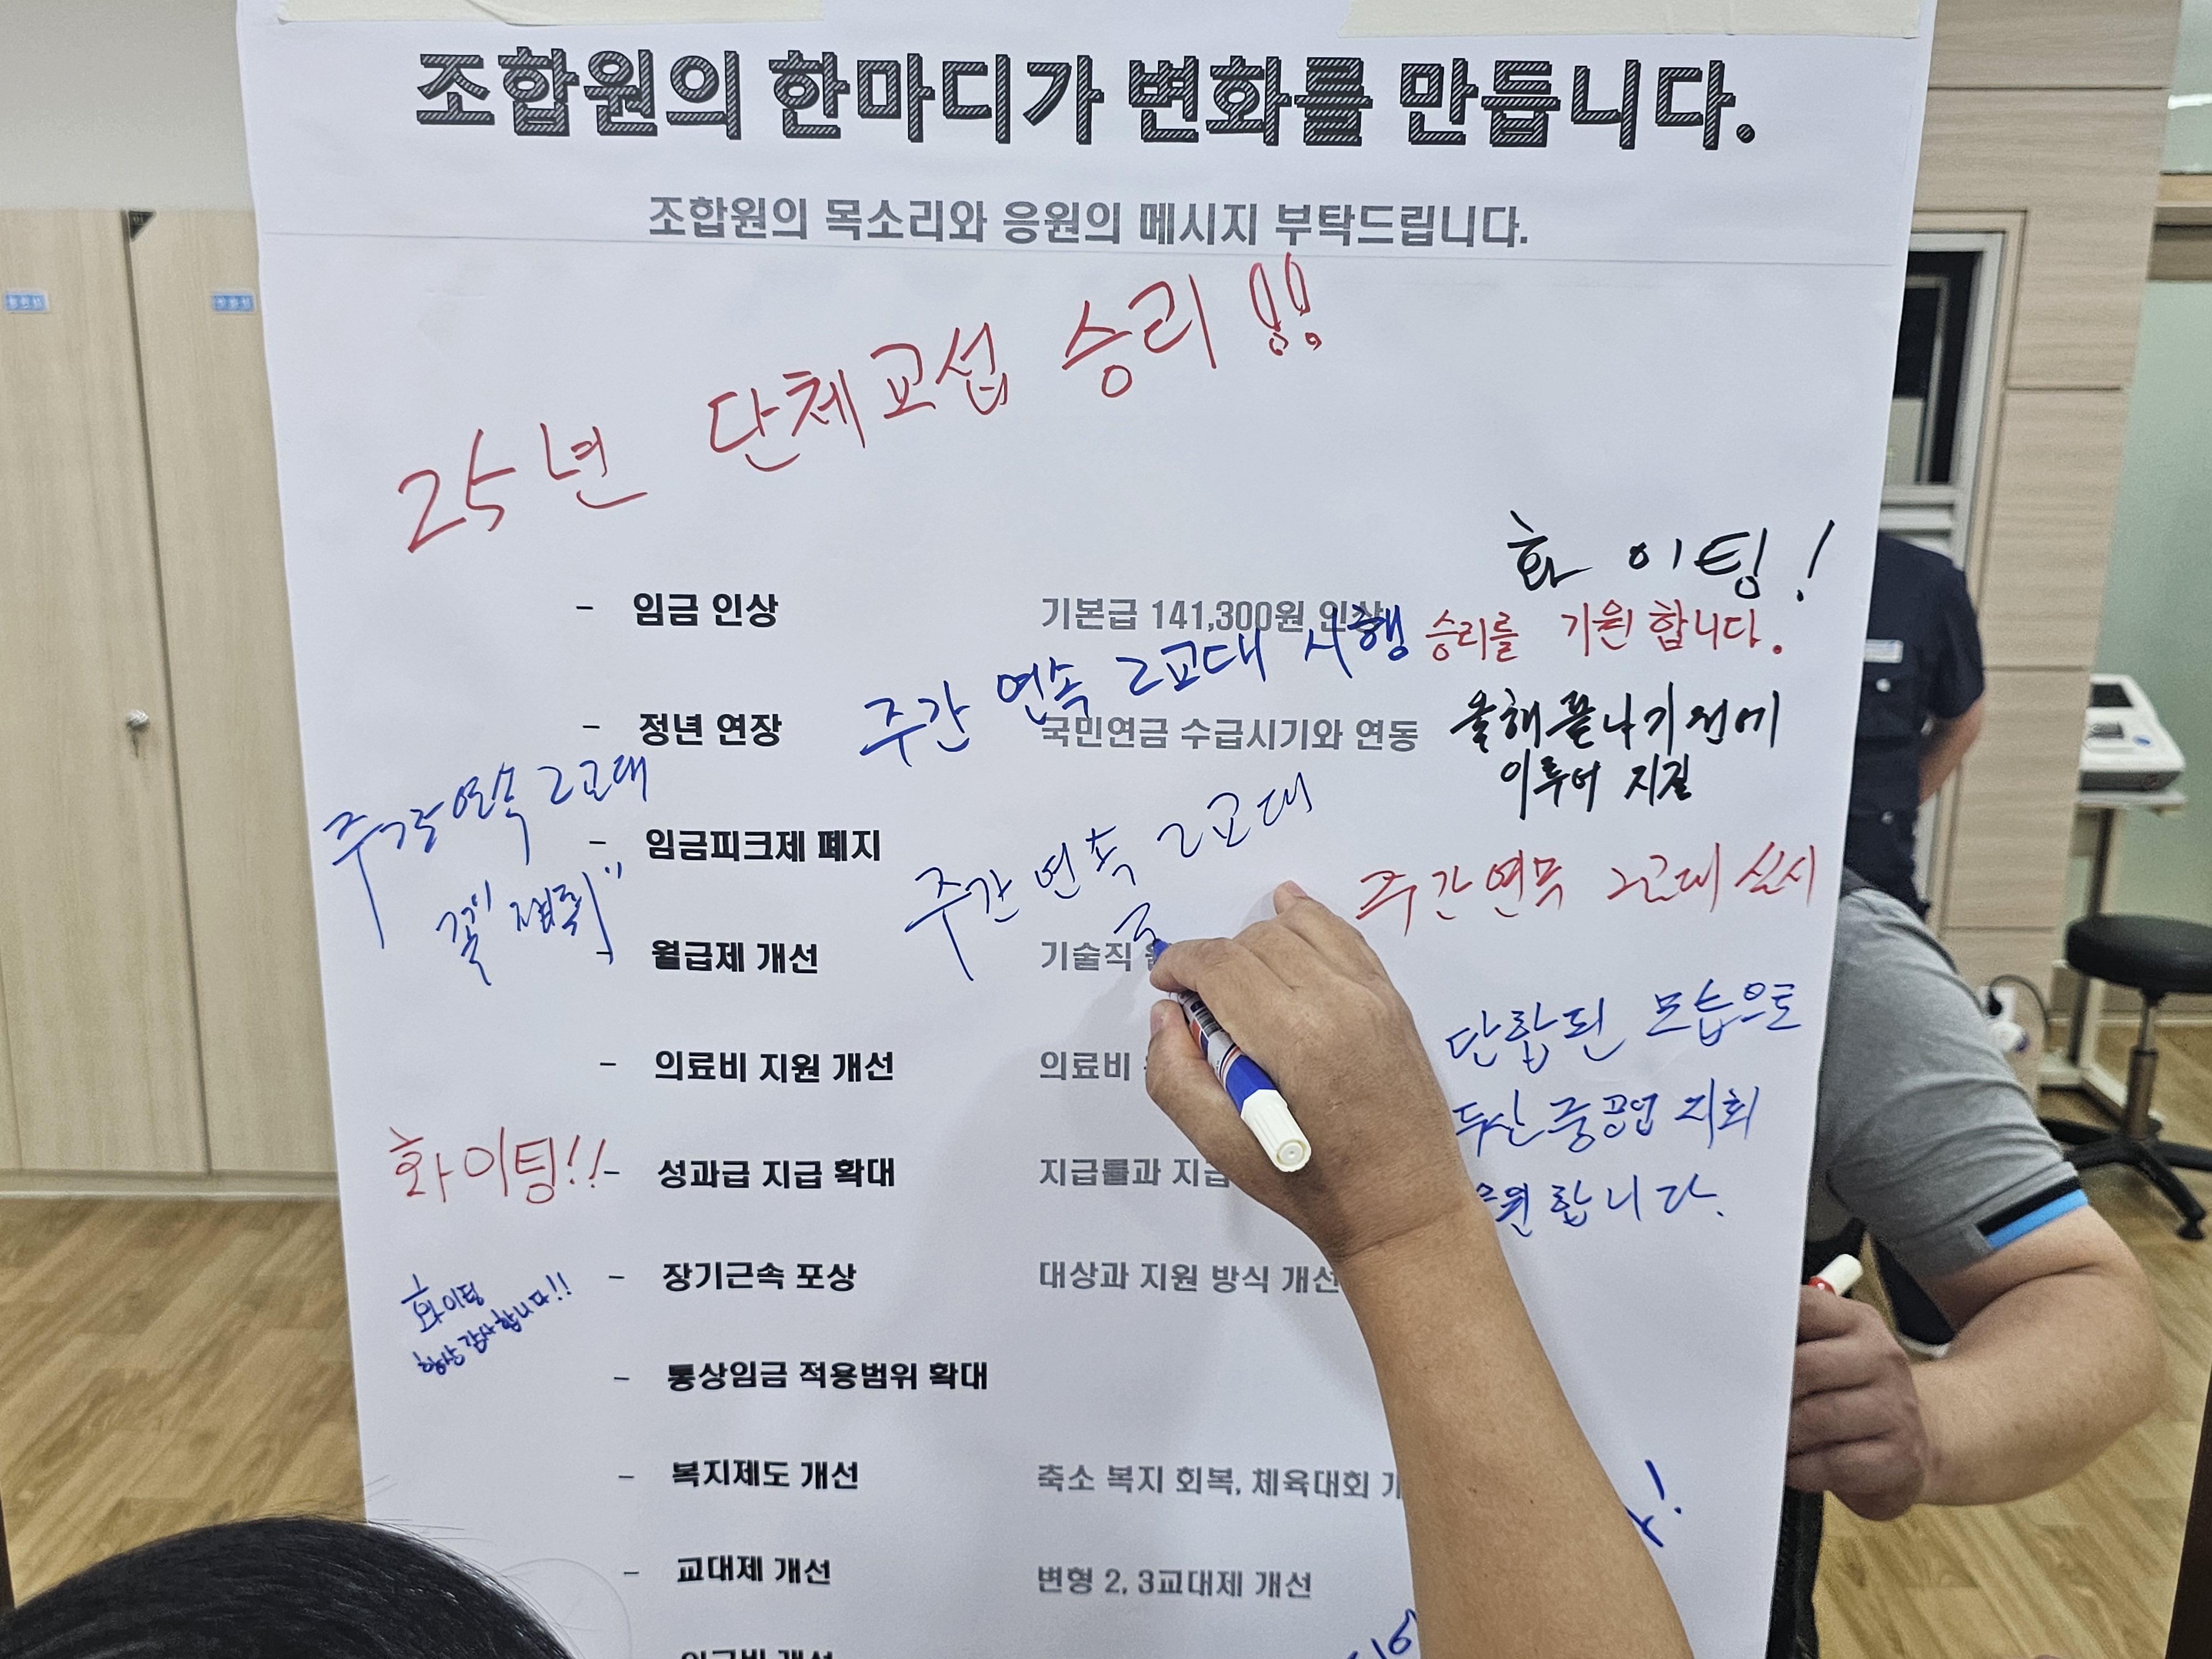 조합원의 한마디가 변화를 만듭니다.
조합원의 목소리와 응원의 메시지 부탁드립니다.
25년 단체교섭 승리!!
화이팅!
- 임금 인상 기본급 141,300원 인상
승리를 기원합니다.
주간 연속 2교대 시행
- 정년 연장 국민연금 수급시기와 연동
올해 끝나기 전에
이루어 지길
주간연속 2교대
꼭 "쟁취"
- 임금피크제 폐지
주간 연속 2교대
주간연속 2교대 실시
- 월급제 개선 기술직
- 의료비 지원 개선 의료비
단합된 모습으로
두산중공업 지회
응원합니다.
화이팅!!
- 성과급 지급 확대 지급률과 지급
- 장기근속 포상 대상과 지원 방식 개선
화이팅
항상 감사합니다!!
- 통상임금 적용범위 확대
- 복지제도 개선 축소 복지 회복, 체육대회
- 교대제 개선 변형 2, 3교대제 개선